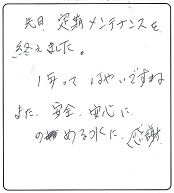 先日 定期メンテナンスを
終えました。
1年って はやいですね
また、安全、安心に
のめるつくた、感謝